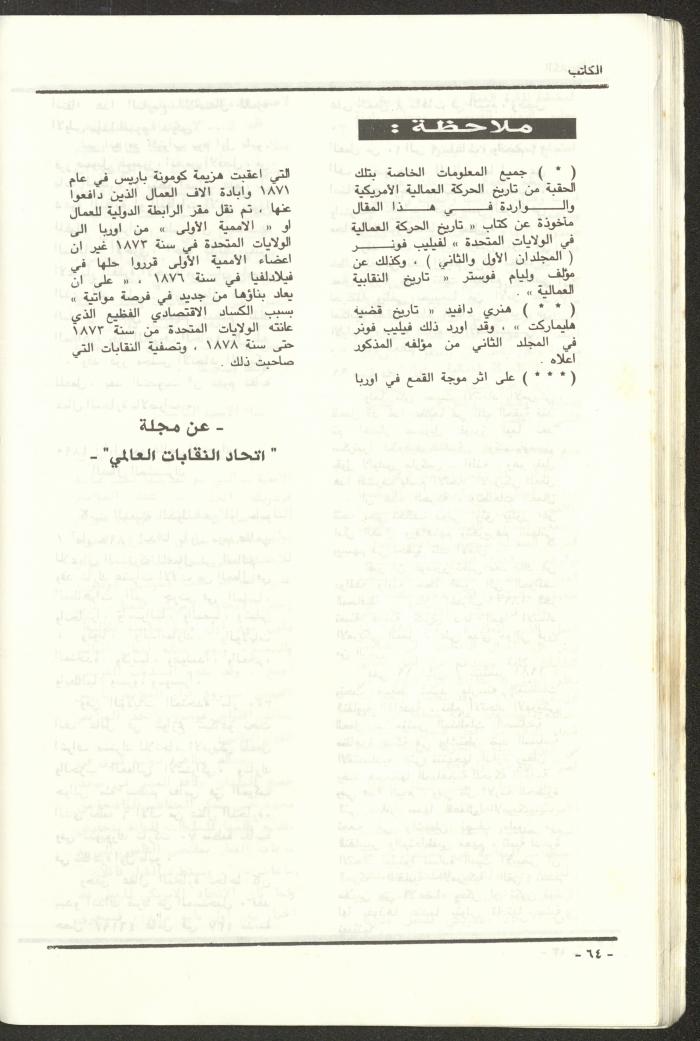 الكاتب
ملاحظة :
( * ) جميع المعلومات الخاصة بتلك
الحقبة من تاريخ الحركة العمالية الامريكية
والـــــواردة فــــي هــــذا المقال
مأخوذة عن كتاب « تاريخ الحركة العمالية
في الولايات المتحدة » لفيليب فونــــر
( المجلدان الأول والثاني ) ، وكذلك عن
مؤلف وليام فوستر « تاريخ النقابية
العمالية » .
( * * ) هنري دافيد « تاريخ قضية
هليماركت » ، وقد اورد ذلك فيليب فونر
في المجلد الثاني من مؤلفه المذكور
اعلاه .
( * * * ) على اثر موجة القمع في اوربا
التي اعقبت هزيمة كومونة باريس في عام
١٨٧١ وابادة الاف العمال الذين دافعوا
عنها ، تم نقل مقر الرابطة الدولية للعمال
او « الاممية الأولى » من اوربا الى
الولايات المتحدة في سنة ١٨٧٣ غير ان
اعضاء الاممية الأولى قرروا حلها في
فيلادلفيا في سنة ١٨٧٦ ، « على ان
يعاد بناؤها من جديد في فرصة مواتية »
بسبب الكساد الاقتصادي الفظيع الذي
عانته الولايات المتحدة من سنة ١٨٧٣
حتى سنة ١٨٧٨ ، وتصفية النقابات التي
صاحبت ذلك .
- عن مجلة
" اتحاد النقابات العالمي" -
- ٦٤ -